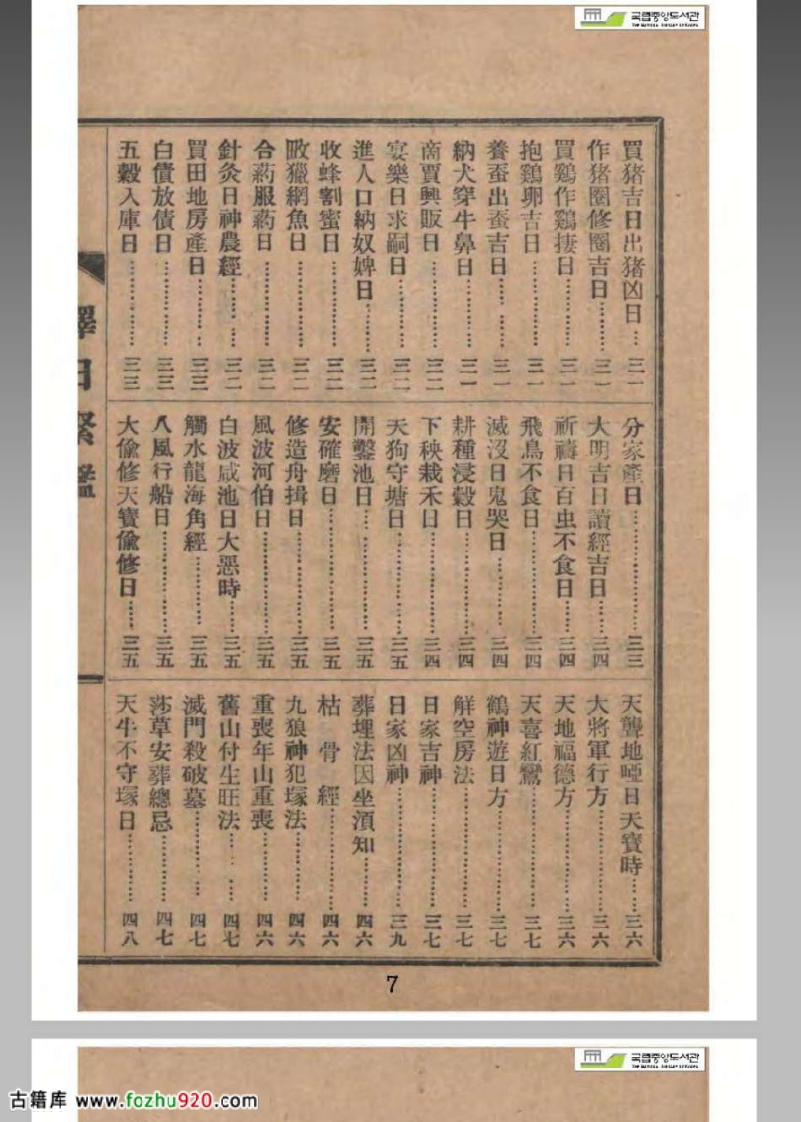 국립중앙도서관
THE NATIONAL LIBRARY OF KOREA
買猪吉日出猪凶日…三一
作猪圈修圈吉日………三一
買鷄作鷄捿日…………三一
抱鷄卵吉日……………三一
養蚕出蚕吉日…………三一
納犬穿牛鼻日…………三一
商賈興販日……………三二
宴樂日求嗣日…………三二
進人口納奴婢日………三二
收蜂割蜜日……………三二
畋獵網魚日……………三二
合葯服葯日……………三二
針灸日神農經…………三二
買田地房產日…………三三
白債放債日……………三三
五穀入庫日……………三三
分家產日………………三三
大明吉日讀經吉日……三四
祈禱日百虫不食日……三四
飛鳥不食日……………三四
滅沒日鬼哭日…………三四
耕種浸穀日……………三四
下秧栽禾日……………三四
天狗守塘日……………三五
開鑿池日………………三五
安確磨日………………三五
修造舟揖日……………三五
風波河伯日……………三五
白波咸池日大惡時……三五
觸水龍海角經…………三五
八風行船日……………三五
大偸修天寶偸修日……三五
天聾地啞日天寶時……三六
大將軍行方……………三六
天地福德方……………三六
天喜紅鸞………………三七
鶴神遊日方……………三七
觧空房法………………三七
日家吉神………………三七
日家凶神………………三九
葬埋法因坐須知………四六
枯骨經…………………四六
九狼神犯塚法…………四六
重喪年山重喪…………四六
舊山付生旺法…………四七
滅門殺破墓……………四七
莎草安葬總忌…………四七
天牛不守塚日…………四八
擇日緊鑑
7
국립중앙도서관
THE NATIONAL LIBRARY OF KOREA
古籍库 www.fozhu920.com